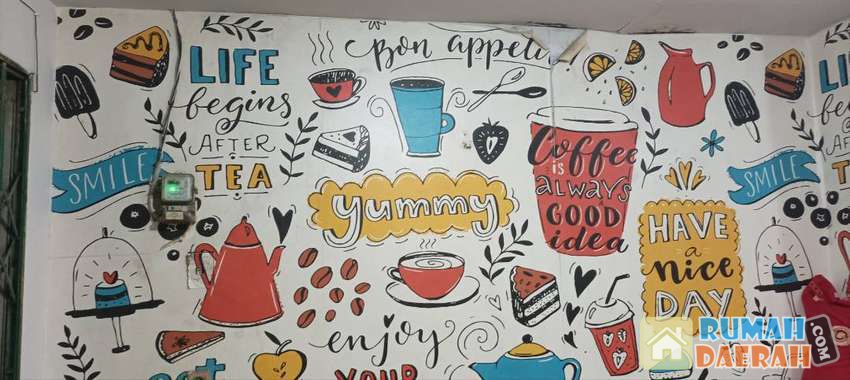 Bon appeti
LIFE
begins
AFTER
TEA
SMILE
yummy
Coffee
IS
always
GOOD
idea
SMILE
HAVE
a
nice
DAY
enjoy
YOUR
RUMAH
DAERAH
.COM